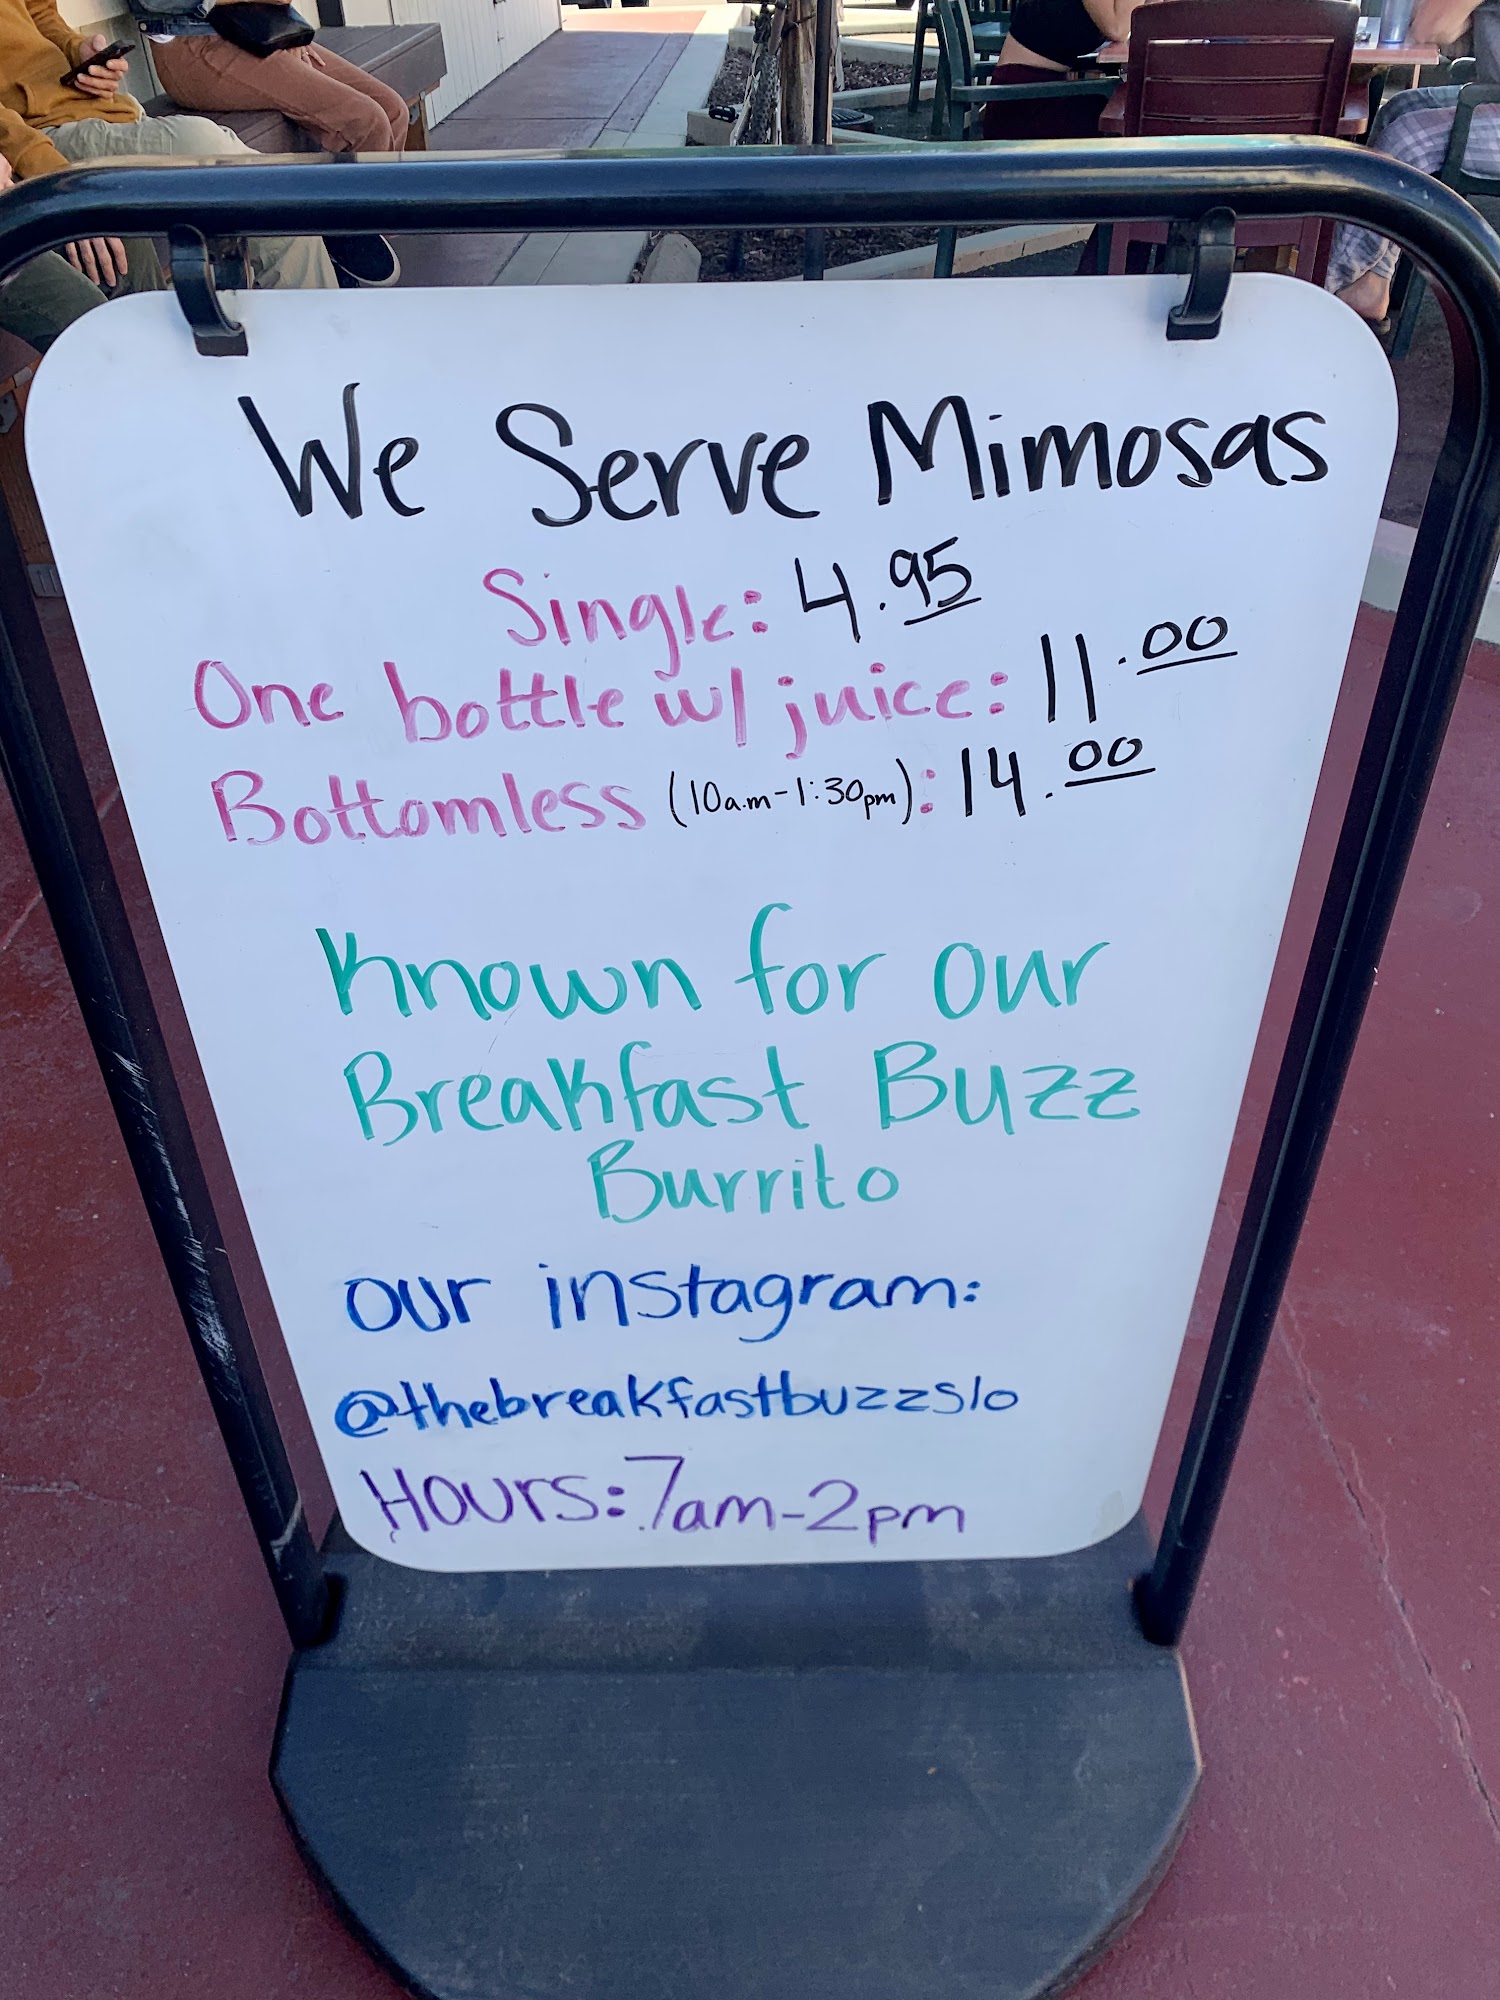 We Serve Mimosas
Single: 4.95
One bottle w/ juice: 11.00
Bottomless (10a.m-1:30pm): 14.00
Known for our
Breakfast Buzz
Burrito
our instagram:
@thebreakfastbuzzslo
Hours: 7am-2pm